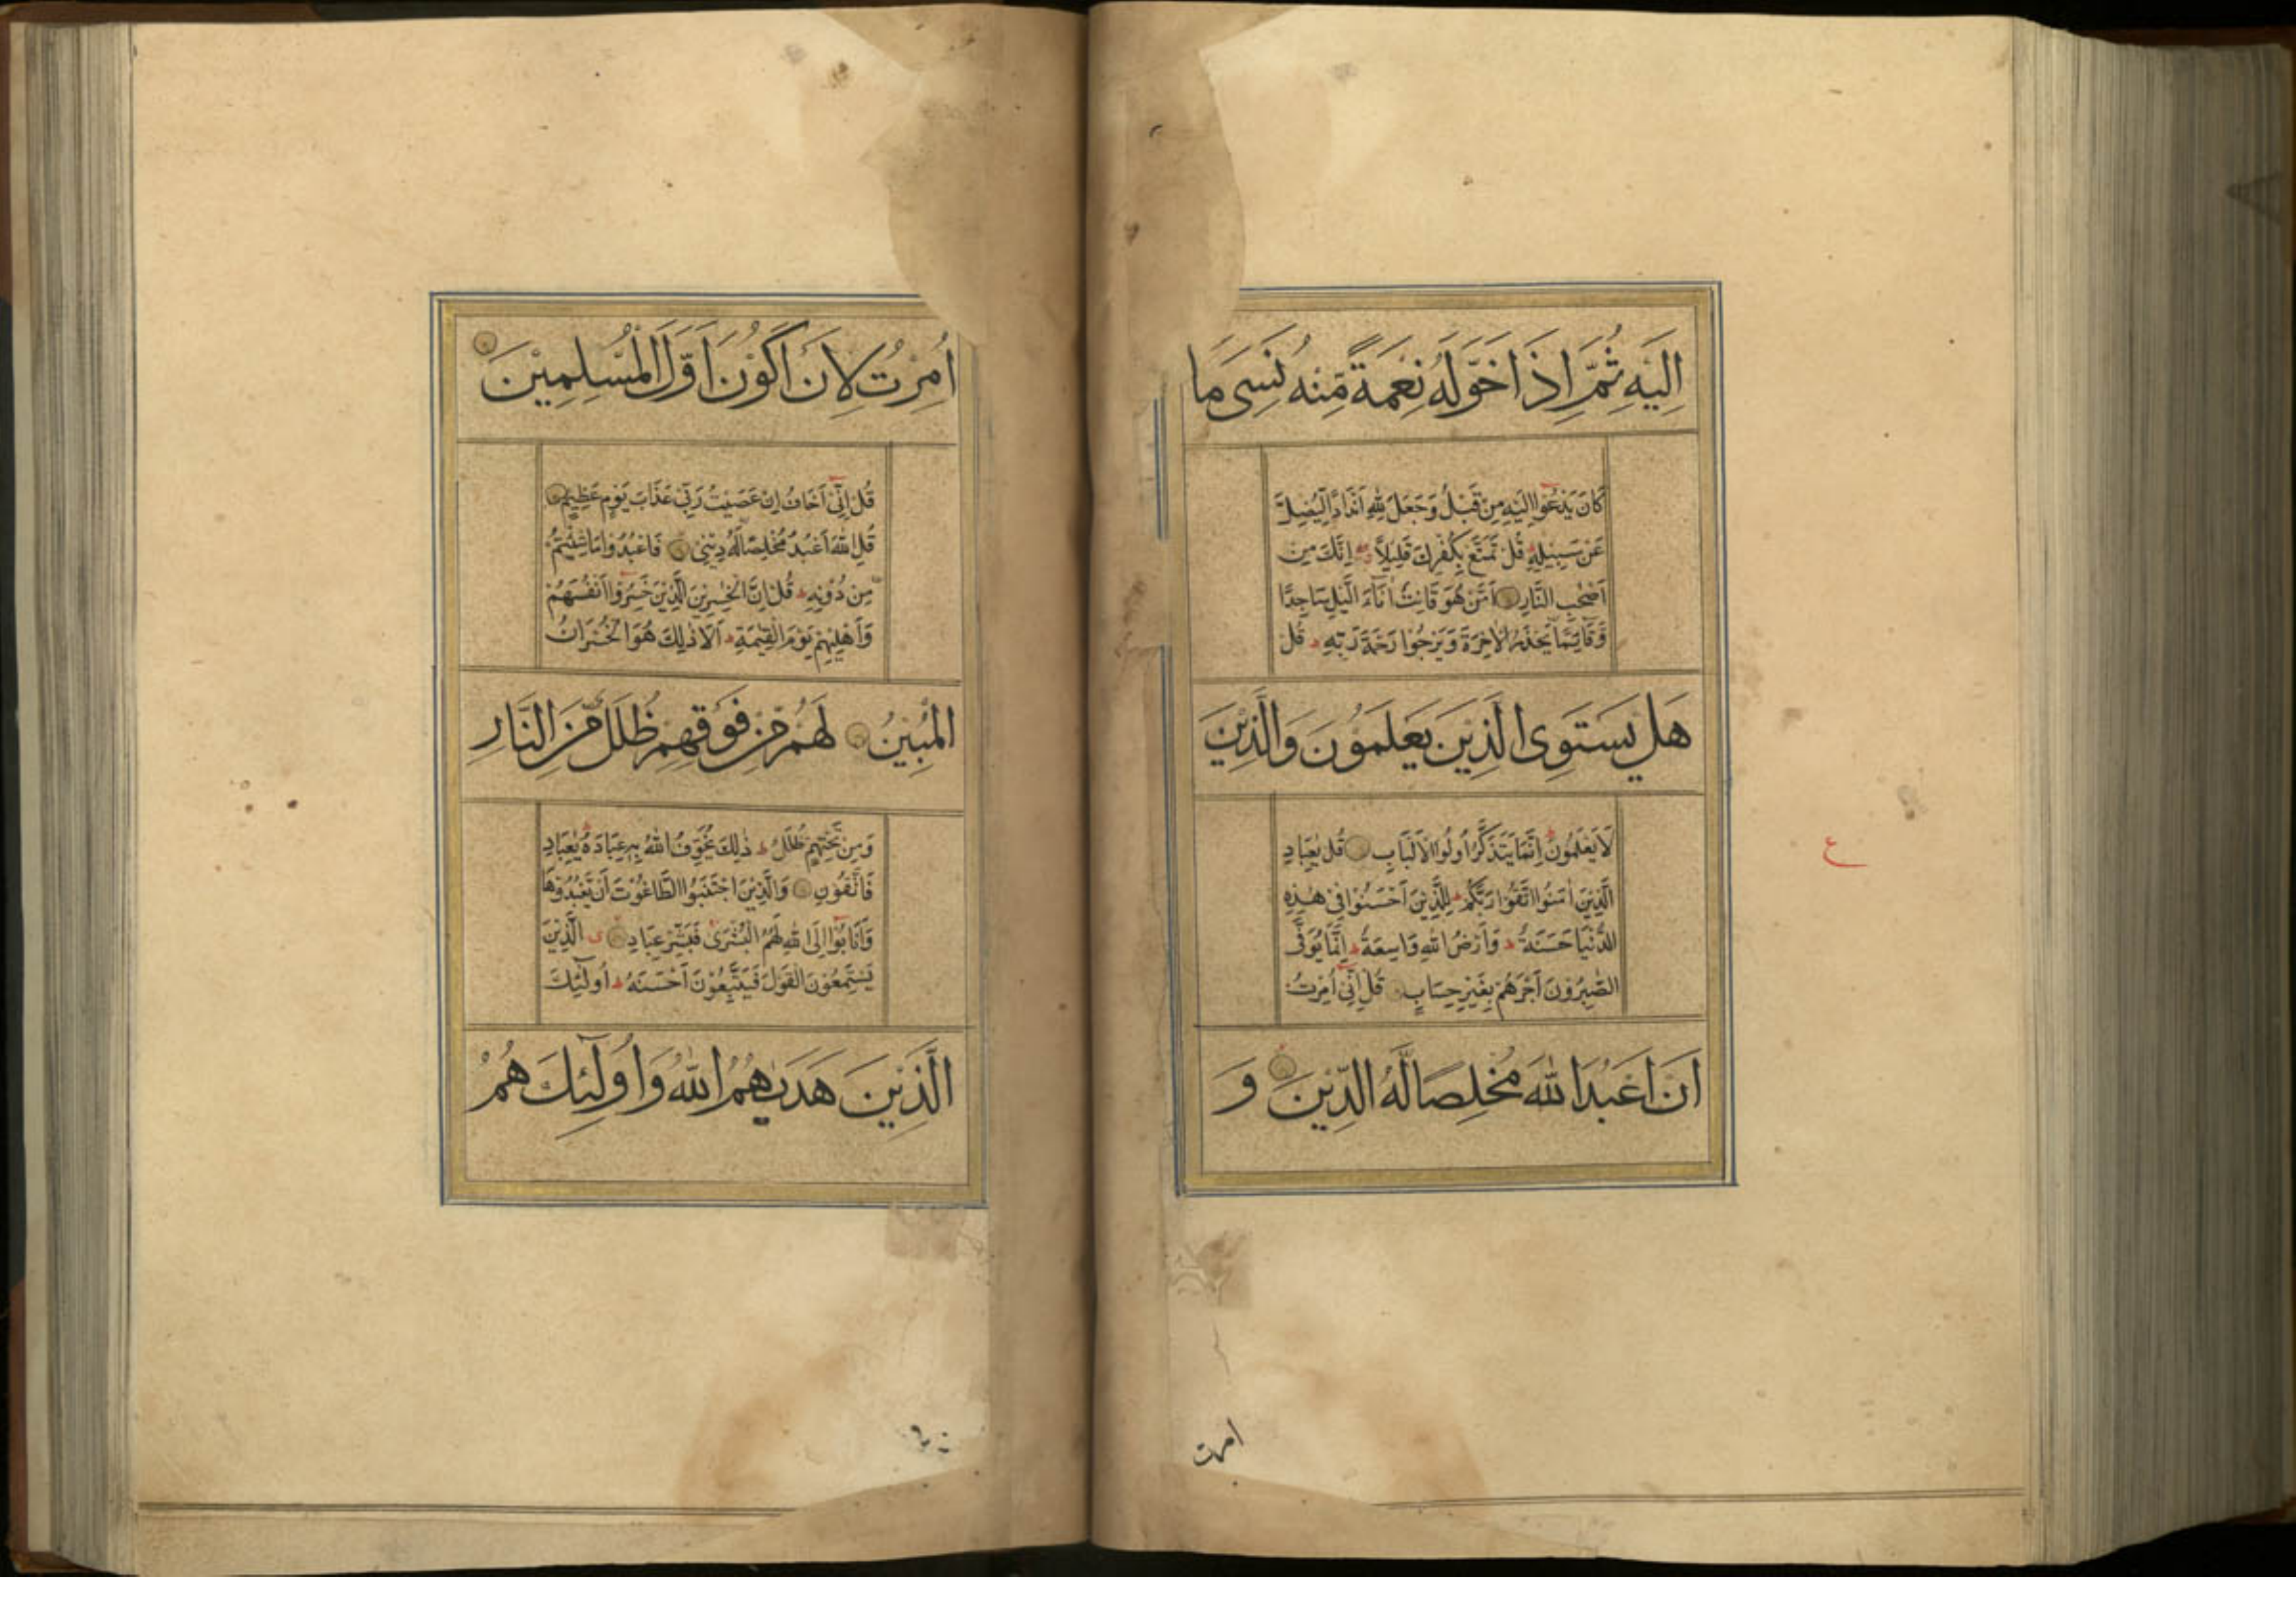 اِلَيْهِ ثُمَّ اِذَا خَوَّلَهُ نِعْمَةً مِّنْهُ نَسِىَ مَا
كَانَ يَدْعُوْا اِلَيْهِ مِنْ قَبْلُ وَجَعَلَ لِلّٰهِ اَنْدَادًا لِّيُضِلَّ
عَنْ سَبِيْلِهٖ قُلْ تَمَتَّعْ بِكُفْرِكَ قَلِيْلًا اِنَّكَ مِنْ
اَصْحٰبِ النَّارِ اَمَّنْ هُوَ قَانِتٌ اٰنَآءَ الَّيْلِ سَاجِدًا
وَّقَآئِمًا يَّحْذَرُ الْاٰخِرَةَ وَيَرْجُوْا رَحْمَةَ رَبِّهٖ قُلْ
هَلْ يَسْتَوِى الَّذِيْنَ يَعْلَمُوْنَ وَالَّذِيْنَ
لَا يَعْلَمُوْنَ اِنَّمَا يَتَذَكَّرُ اُولُوا الْاَلْبَابِ قُلْ يٰعِبَادِ
الَّذِيْنَ اٰمَنُوا اتَّقُوْا رَبَّكُمْ لِلَّذِيْنَ اَحْسَنُوْا فِىْ هٰذِهِ
الدُّنْيَا حَسَنَةٌ وَاَرْضُ اللّٰهِ وَاسِعَةٌ اِنَّمَا يُوَفَّى
الصّٰبِرُوْنَ اَجْرَهُمْ بِغَيْرِ حِسَابٍ قُلْ اِنِّىْ اُمِرْتُ
اَنْ اَعْبُدَ اللّٰهَ مُخْلِصًا لَّهُ الدِّيْنَ وَ
ع
امرت
اُمِرْتُ لِاَنْ اَكُوْنَ اَوَّلَ الْمُسْلِمِيْنَ
قُلْ اِنِّىْ اَخَافُ اِنْ عَصَيْتُ رَبِّىْ عَذَابَ يَوْمٍ عَظِيْمٍ
قُلِ اللّٰهَ اَعْبُدُ مُخْلِصًا لَّهُ دِيْنِىْ فَاعْبُدُوْا مَا شِئْتُمْ
مِنْ دُوْنِهٖ قُلْ اِنَّ الْخٰسِرِيْنَ الَّذِيْنَ خَسِرُوْا اَنْفُسَهُمْ
وَاَهْلِيْهِمْ يَوْمَ الْقِيٰمَةِ اَلَا ذٰلِكَ هُوَ الْخُسْرَانُ
الْمُبِيْنُ لَهُمْ مِّنْ فَوْقِهِمْ ظُلَلٌ مِّنَ النَّارِ
وَمِنْ تَحْتِهِمْ ظُلَلٌ ذٰلِكَ يُخَوِّفُ اللّٰهُ بِهٖ عِبَادَهٗ يٰعِبَادِ
فَاتَّقُوْنِ وَالَّذِيْنَ اجْتَنَبُوا الطَّاغُوْتَ اَنْ يَّعْبُدُوْهَا
وَاَنَابُوْا اِلَى اللّٰهِ لَهُمُ الْبُشْرٰى فَبَشِّرْ عِبَادِ الَّذِيْنَ
يَسْتَمِعُوْنَ الْقَوْلَ فَيَتَّبِعُوْنَ اَحْسَنَهٗ اُولٰٓئِكَ
الَّذِيْنَ هَدٰىهُمُ اللّٰهُ وَاُولٰٓئِكَ هُمْ